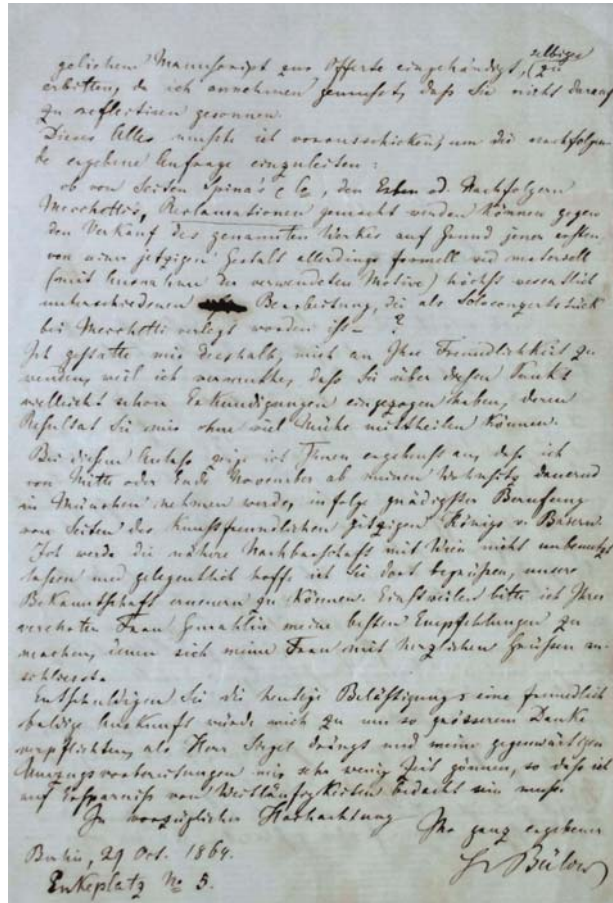 gelichem Manuscript zur Offerte eingehändigt, selbiges zu
erbitten, da ich annehmen gemusst, dass Sie nicht darauf
zu reflectiren gesonnen.
Dieses Alles musste ich vorausschicken, um die nachfolgen-
de ergebene Anfrage einzuleiten:
ob von Seiten Spina's, den Erben od. Nachfolgern
Mecchetti's, Reclamationen gemacht werden können gegen
den Verkauf des genannten Werkes auf Grund jener ersten
von seiner jetzigen Gestalt allerdings formell und materiell
(mit Ausnahme der verwendeten Motive) höchst wesentlich
unterschiedenen Bearbeitung, die als Soloconcertstück
bei Mecchetti verlegt worden ist – ?
Ich gestatte mir deshalb, mich an Ihre Freundlichkeit zu
wenden, weil ich vermuthe, dass Sie über diesen Punkt
vielleicht schon Erkundigungen eingezogen haben, deren
Resultat Sie mir ohne viel Mühe mittheilen können.
Bei diesem Anlass zeige ich Ihnen ergebenst an, dass ich
von Mitte oder Ende November ab meinen Wohnsitz dauernd
in München nehmen werde, infolge gnädigster Berufung
von Seiten des kunstfreundlichen jetzigen Königs v. Bayern.
Ich werde die nähere Nachbarschaft mit Wien nicht unbenutzt
lassen und gelegentlich hoffe ich Sie dort begrüssen, unsere
Bekanntschaft erneuern zu können. Einstweilen bitte ich Ihrer
verehrten Frau Gemahlin meine besten Empfehlungen zu
machen, denen sich meine Frau mit herzlichen Grüssen an-
schliesst.
Entschuldigen Sie die heutige Belästigung; eine freundlich
baldige Auskunft würde mich zu um so grösserem Danke
verpflichten, als Herr Siegel drängt und meine gegenwärtigen
Umzugsvorbereitungen mir sehr wenig Zeit gönnen, so dass ich
auf Ersparniss von Weitläufigkeiten bedacht sein muss.
In vorzüglicher Hochachtung
Ihr ganz ergebener
Berlin, 29 Oct. 1864.
Bülow
Enkeplatz No 5.